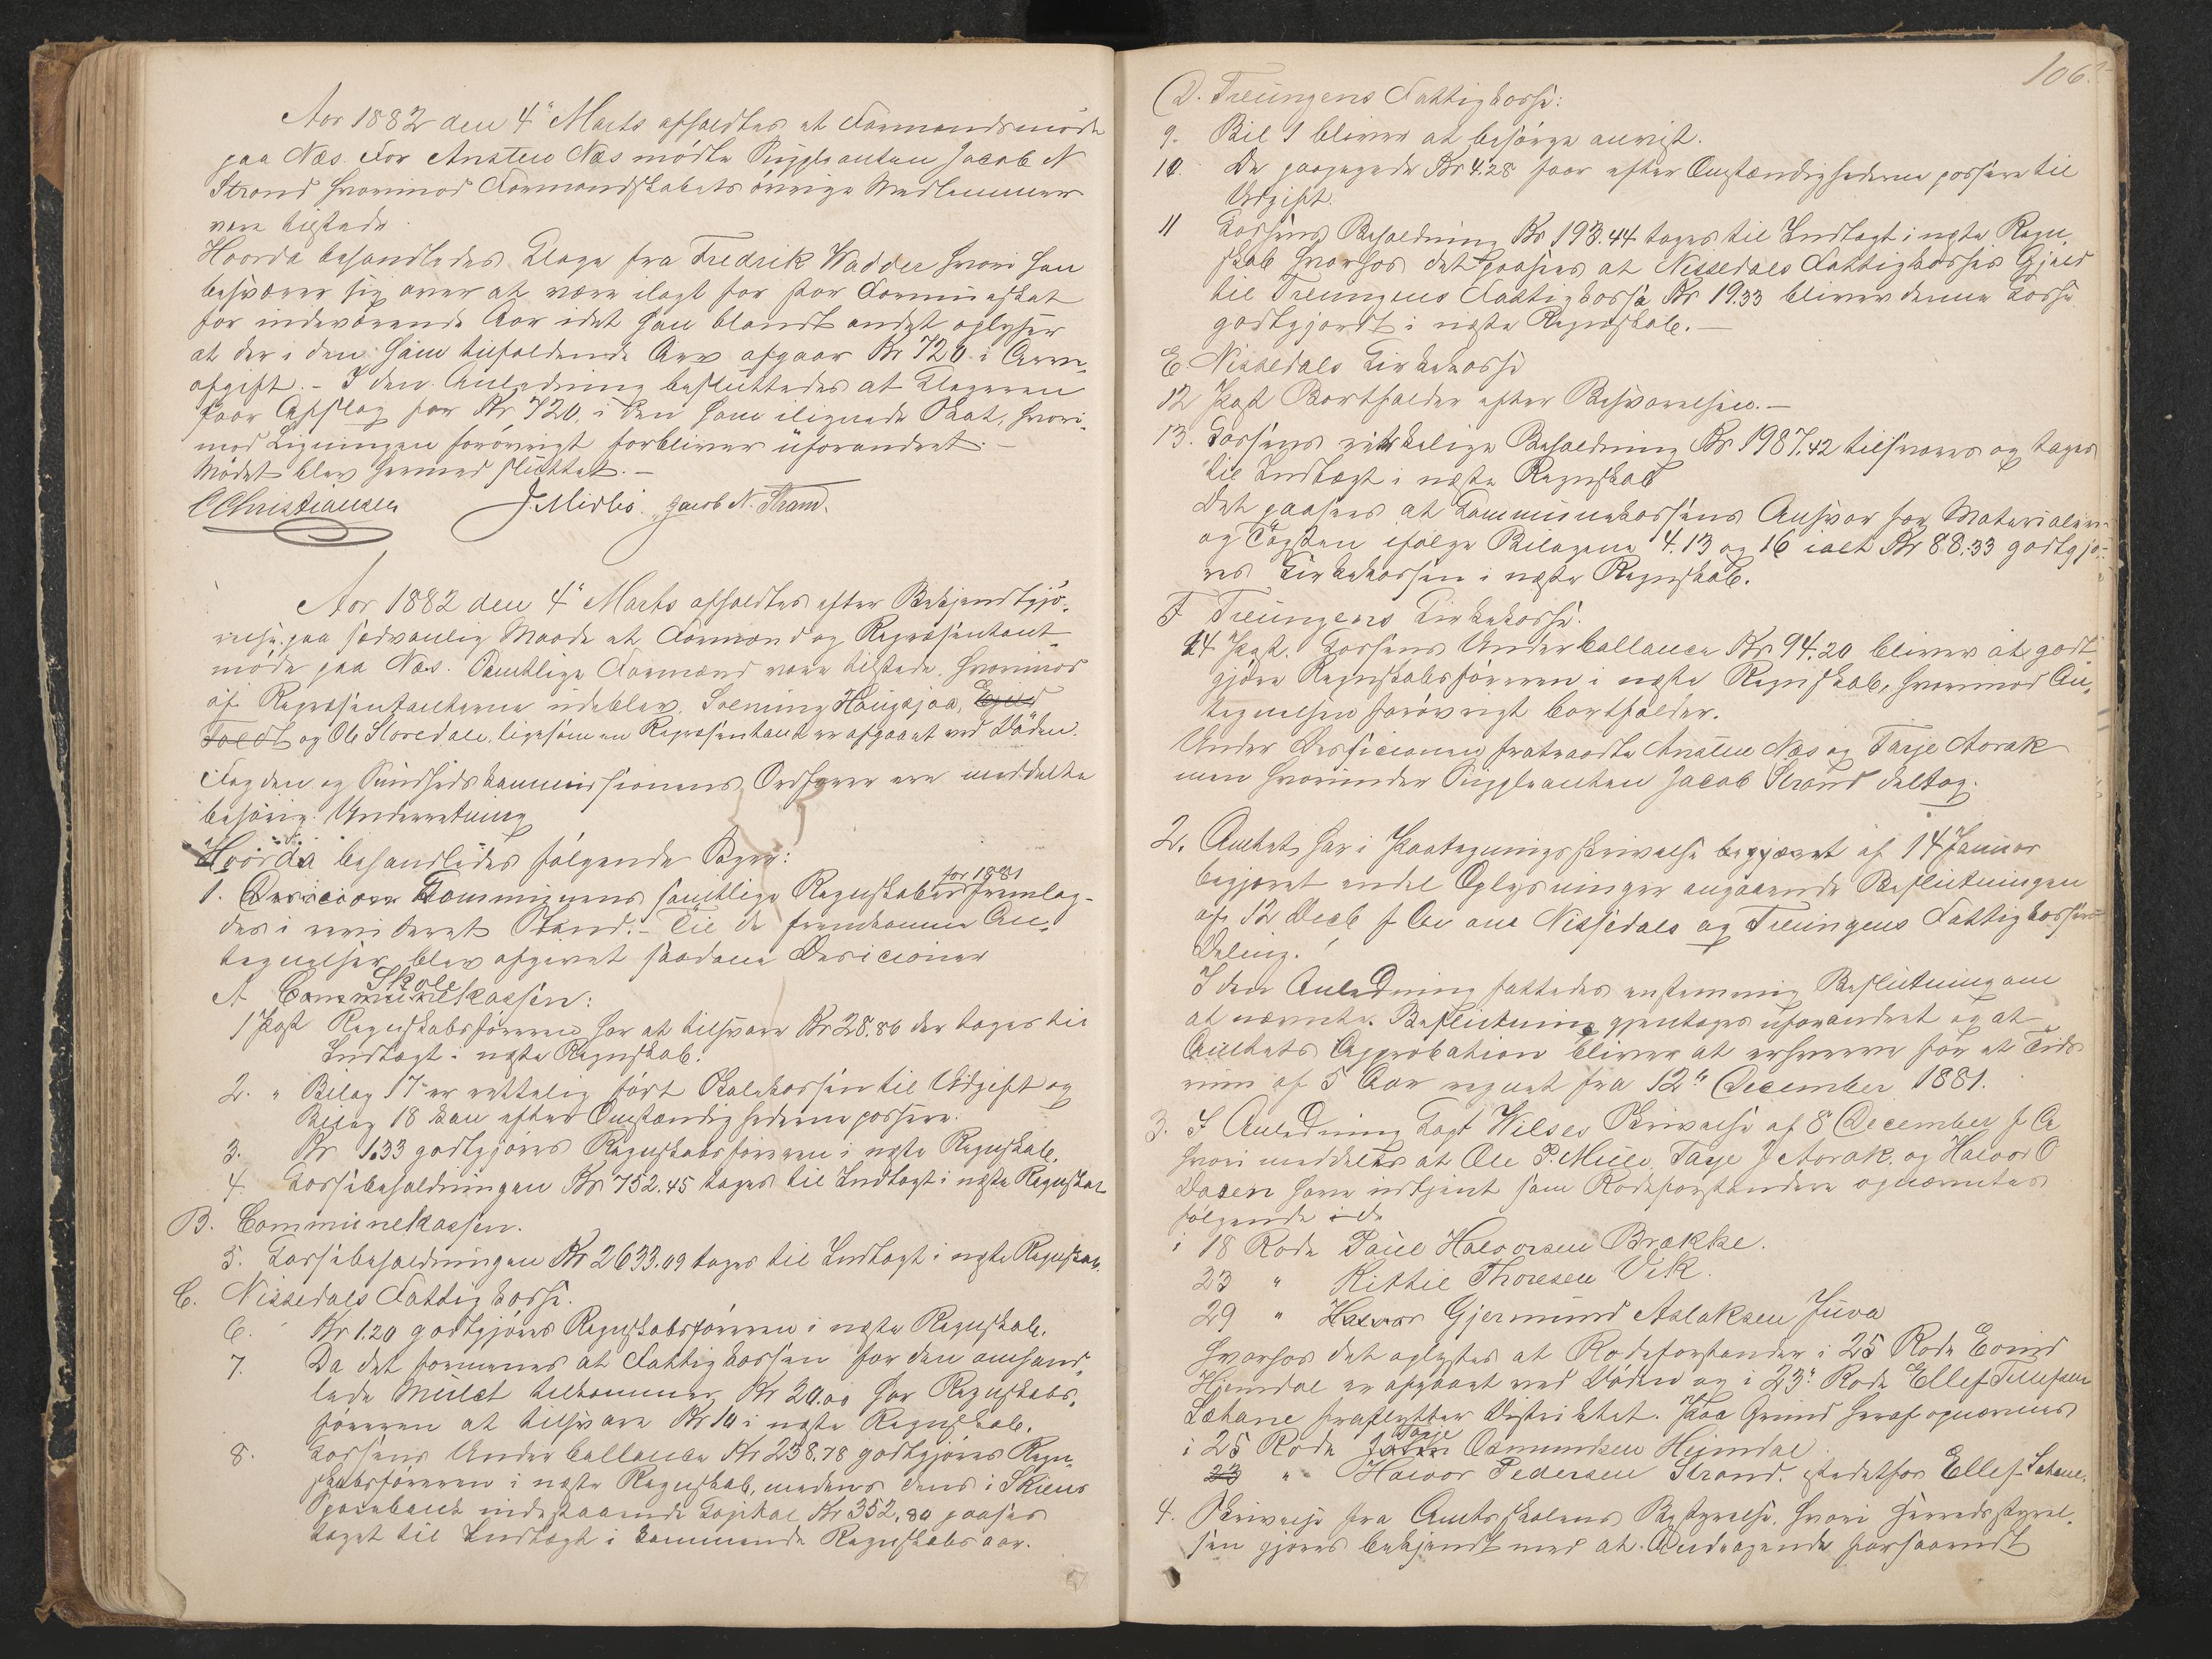 Aar 1882 den 4de Marts afholdtes et Formandsmøde
paa Næs. For Ansteen Næs mødte Suppleanten Jacob N
Strand hvorimod Formandskabets øvrige Medlemmer
vare tilstede.
Hvorda behandledes Klage fra Fredrik Wadder hvori han
besværer sig over at være ilagt for stor Formueskat
for indeværende Aar idet han blandt andet oplyser
at der i den ham tilfaldende Arv afgaar Kr 720 i Arve-
afgift. - I den Anledning besluttedes at Klageren
faar Afslag for Kr 720, i den ham ilignede Skat, hvori-
mod Ligningen forøvrigt forbliver uforandret. -
Mødet blev hermed sluttet. -
C Christiansen J. Midbö. Jacob N. Strand.
Aar 1882 den 4de Marts afholdtes efter Bekjendtgjø-
relse paa sædvanlig Maade et Formand og Repræsentant-
møde paa Næs. Samtlige Formænd vare tilstede, hvorimod
af Repræsentanterne udeblev Sveinung Haugsjaa,
og Ole Storedale, ligesom en Repræsentant er afgaaet ved Døden.
Fogden og Sundhedskommissionens Ordfører ere meddelte
behørig Underretning
Hvorda behandledes følgende Sager:
1. Kommunens samtlige Regnskaber for 1881 fremlag-
des i revideret Stand. - Til de fremkomne An-
tegnelser blev afgivet saadane Desicioner
A Skolekassen:
1 Post Regnskabsføreren har at tilsvare Kr 28.86 der tages til
Indtægt i næste Regnskab.
2. " Bilag 17 er rettelig ført Skolekassen til Udgift og
Bilag 18 kan efter Omstændighederne passere.
3. Kr 1.33 godtgjøres Regnskabsføreren i næste Regnskab.
4. Kassebeholdningen Kr 752.45 tages til Indtægt i næste Regnskab
B. Communekassen.
5. Kassebeholdningen Kr 2633.09 tages til Indtægt i næste Regnskab.
C. Nissedals Fattigkasse.
6. Kr 1.20 godtgjøres Regnskabsføreren i næste Regnskab.
7. Da det formenes at Fattigkassen for den omhand-
lede Mulct tilkommer Kr 20.00 har Regnskabs-
føreren at tilsvare Kr 10 i næste Regnskab.
8. Kassens Underballance Kr 238.78 godtgjøres Regn-
skabsføreren i næste Regnskab, medens dens i Skiens
Sparebank indestaaende Kapital Kr 352,80 paasees
taget til Indtægt i kommende Regnskabsaar.
106.
D. Treungens Fattigkasse:
9. Bil 1 bliver at besørge anvist.
10. De paapegede Kr 4.28 faar efter Omstændighederne passere til
Udgift.
11 Kassens Beholdning Kr 193.44 tages til Indtægt i næste Regn-
skab hvorhos det paasees at Nissedals Fattigkasses Gjæld
til Treungens Fattigkasse Kr 19.33 bliver denne Kasse
godtgjordt i næste Regnskab. -
E Nissedals Kirkekasse
12 Post Bortfalder efter Besvarelsen. -
13. Kassens Beholdning Kr 1987.42 tilsvares og tages
til Indtægt i næste Regnskab
Det paasees at Kommunekassens Ansvar for Materialier
og ifølge Bilagene 4. 13 og 16 ialt Kr 88.33 godtgjø-
res Kirkekassen i næste Regnskab.
F Treungens Kirkekasse.
14 Post. Kassens Underballance Kr 94.20 bliver at godt
gjøre Regnskabsføreren i næste Regnskab, hvorimod An-
tegnelsen forøvrigt bortfalder.
Under Desicionen fratraadte Ansteen Næs og Tarje Aarak
men hvorunder Suppleanten Jacob Strand deltog.
2. Amtet har i Paategningsskrivelse af 14 Januar
begjæret endel Oplysninger angaaende Beslutningen
af 12 Decb f Aar om Nissedals og Treungens Fattigkassers
Deling.
I den Anledning fattedes enstemmig Beslutning om
at nævnte Beslutning gjentages uforandret og at
Amtets Approbation bliver at erhverve for et Tids
rum af 5 Aar regnet fra 12te December 1881.
3. I Anledning Kapt Wilses Skrivelse af 8 December f A
hvori meddeltes at Ole P. Mule, Tarje J Aarak og Halvor O
Dalen have udtjent som Rodeforstandere opnævntes
følgende
i 18 Rode Paul Halvorsen Brække.
23 " Kittil Thoresen Vik.
29 " Gjermund Aslaksen Juva
hvorhos det oplystes at Rodeforstander i 25 Rode Eivind
Heimdal er afgaaet ved Døden og i 23de Rode Ellef Tellefsen
Lahane fraflytter Distriktet. Paa Grund heraf opnævnes
i 25 Rode Tarje Osmundsen Heimdal
23 " Halvor Pedersen Strand. istedetfor Ellef Lahane.
4. Skrivelse fra Amtsskolens Bestyrelse, hvori Herredsstyrel-
sen gjøres bekjendt med at Andragende forsaavidt